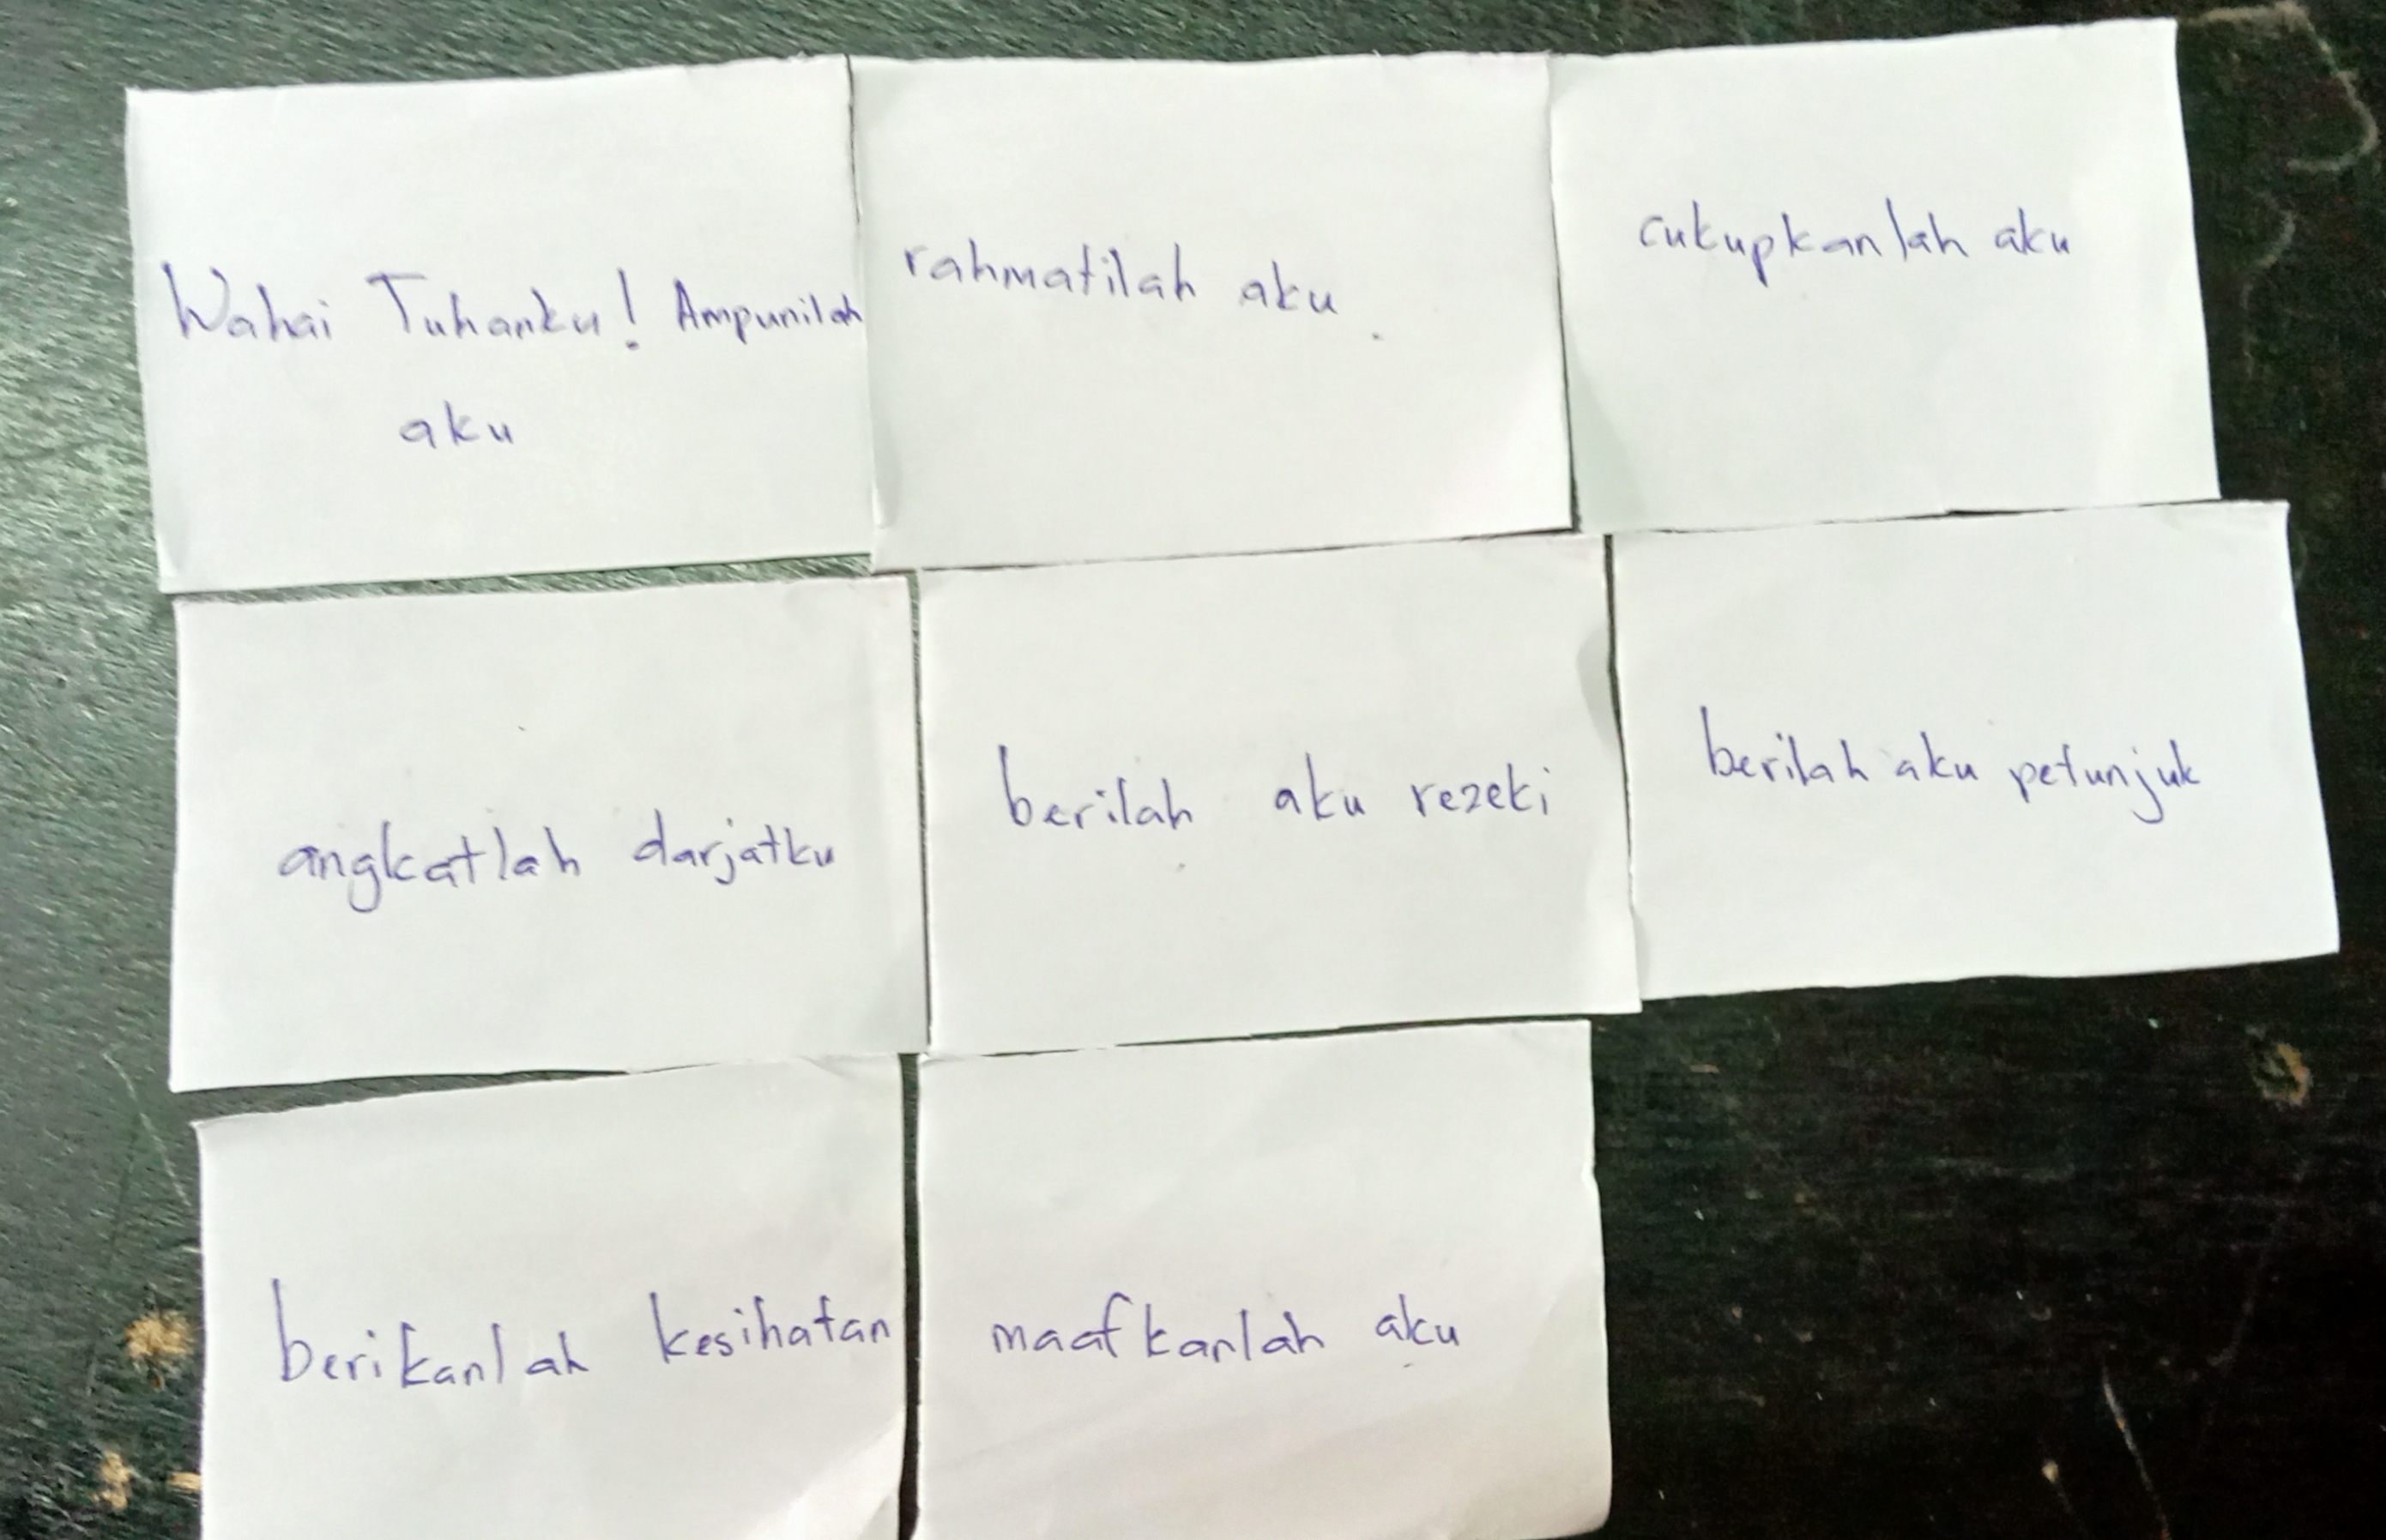 Wahai Tuhanku! Ampunilah
aku
rahmatilah aku.
cukupkanlah aku
angkatlah darjatku
berilah aku rezeki
berilah aku petunjuk
berikanlah kesihatan
maafkanlah aku